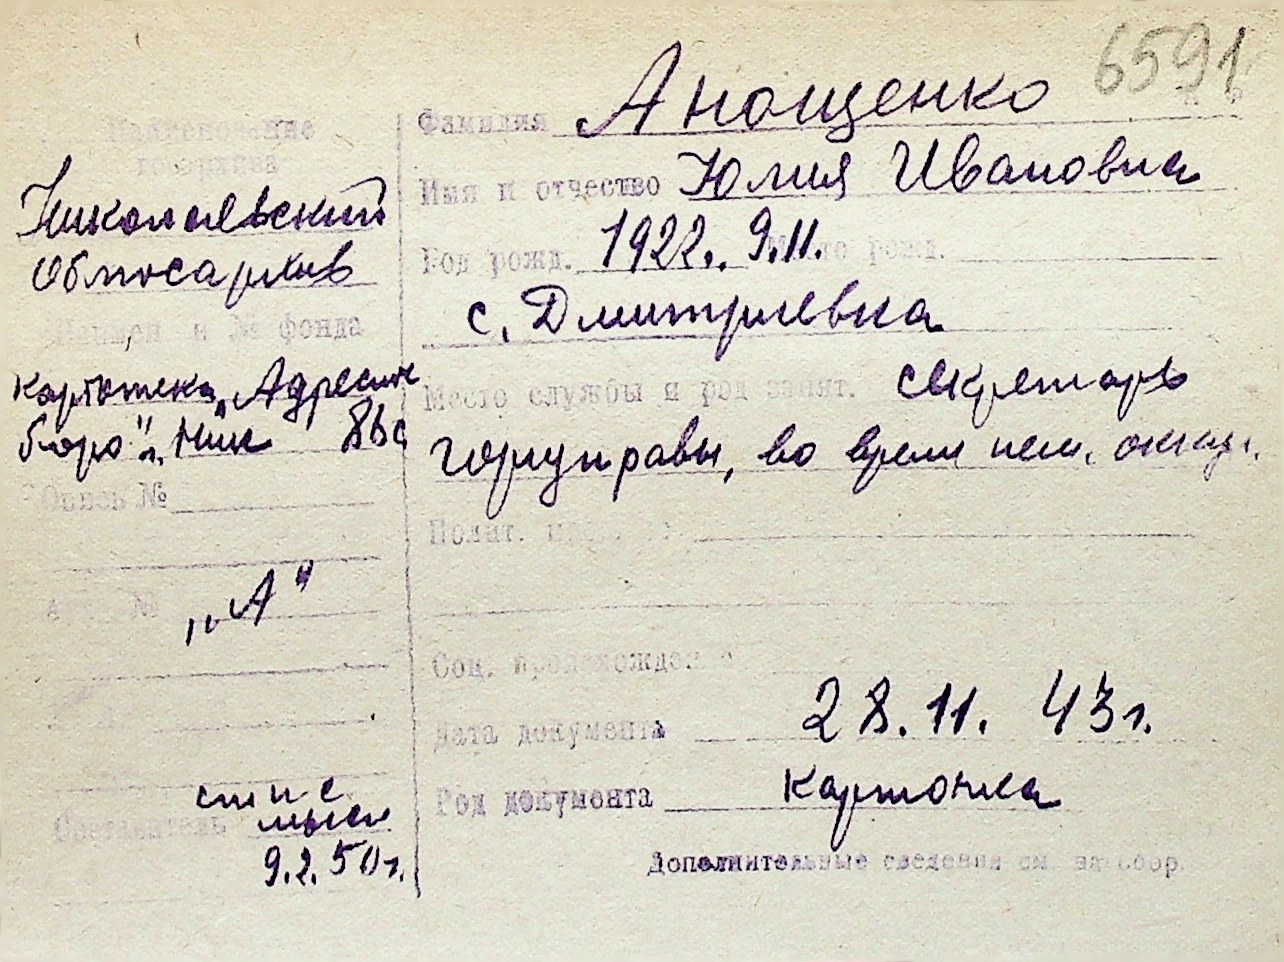 6591
Наименование
госархива
Николаевский
Облгосархив
Наимен и № фонда
Картотека „Адресн
бюро" г. Ник
Опись №
№
„А"
Составитель
9.2.50г.
Фамилия Анощенко
Имя и отчество Юлия Ивановна
Год рожд. 1922. 9.11. Место рожд.
с. Дмитриевка
Место службы и род занят. секретарь
горуправы, во время нем. оккуп.
Полит.
Соц. происхожден
Дата документа 28.11. 43г.
Род документа картонка
Дополнительные сведения см. на обор.